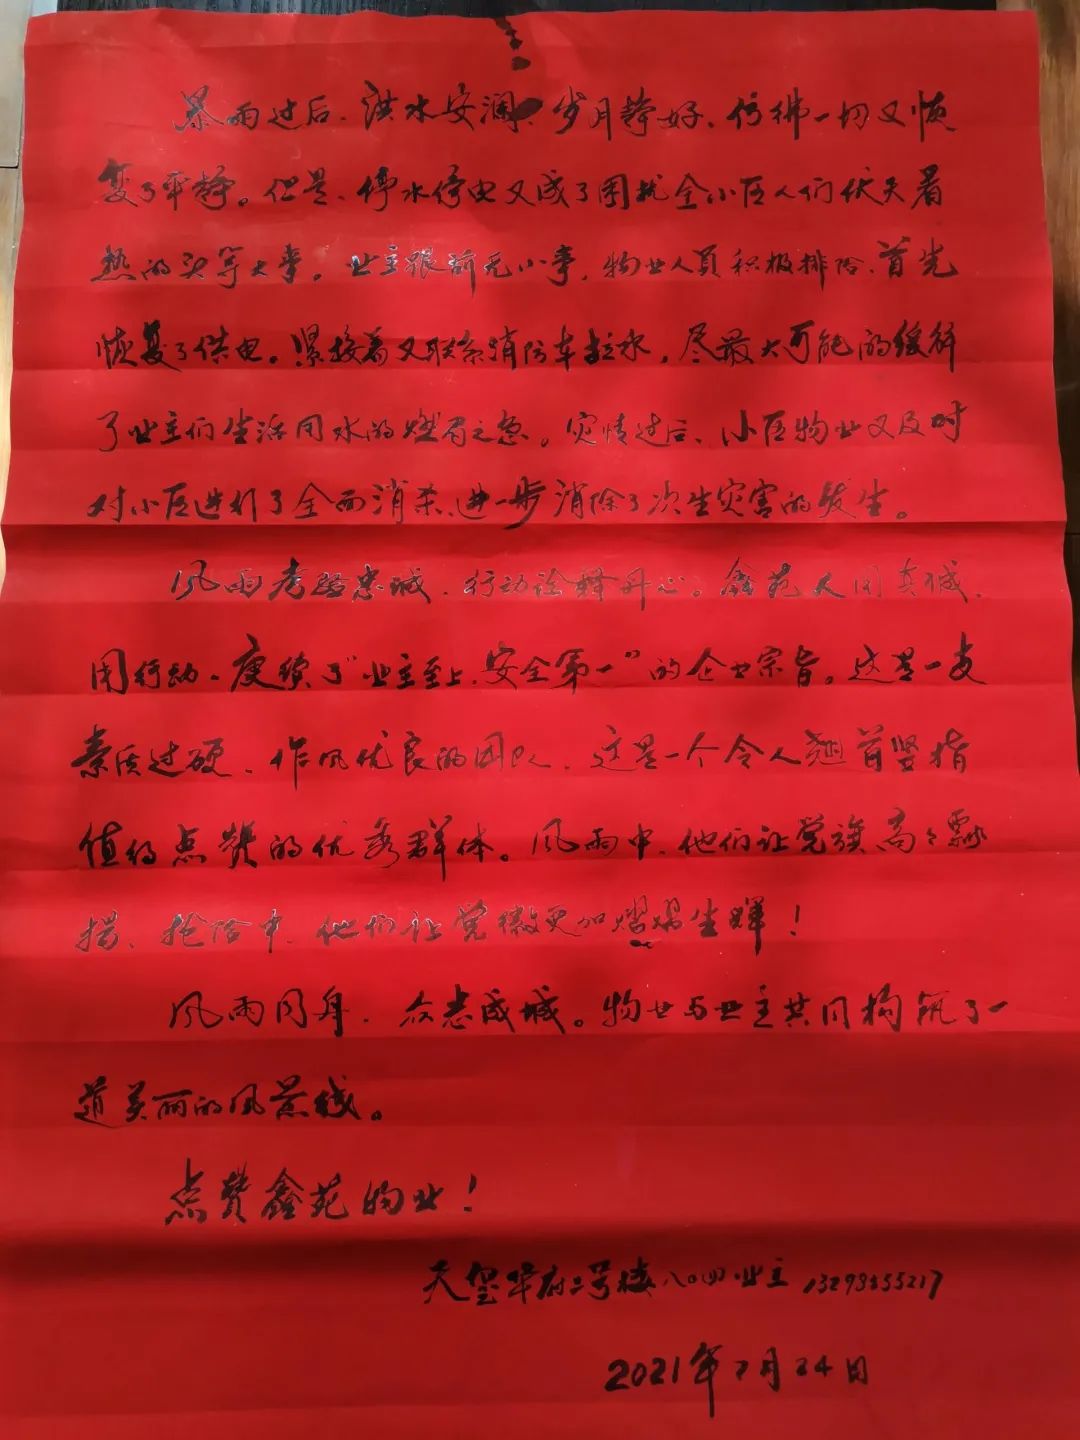 暴雨过后、洪水安澜、岁月静好、仿彿一切又恢
复了平静。但是、停水停电又成了困扰全小区人们伏天着
热的头等大事。业主跟前无小事,物业人员积极排险、首先
恢复了供电。紧接着又联系消防车拉水,尽最大可能的缓解
了业主们生活用水的燃眉之急。灾情过后、小区物业又及时
对小区进行了全面消杀、进一步消除了次生灾害的发生。
风雨考验忠诚、行动诠释丹心。鑫苑人用真诚、
用行动、赓续了“业主至上、安全第一”的企业宗旨。这是一支
素质过硬、作风优良的团队、这是一个令人翘首竖指
值得点赞的优秀群体。风雨中、他们让党旗高々飘
扬、抢险中、他们让党徽更加熠熠生辉!
风雨同舟、众志成城。物业与业主共同构筑了一
道美丽的风景线。
点赞鑫苑物业!
天玺华府二号楼八〇四业主 13293555217
2021年7月24日